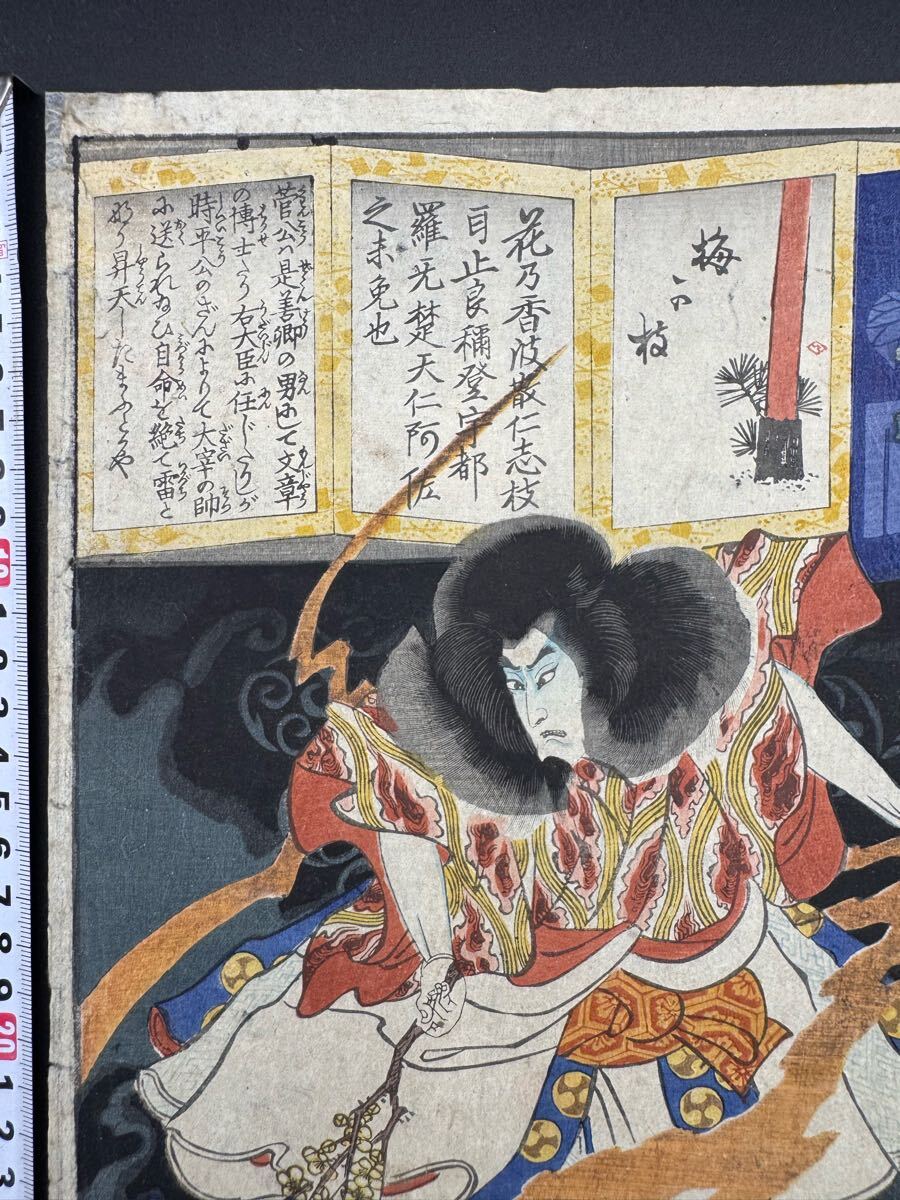 梅
か
枝
花乃香波散仁志枝
目止良稱登宇都
羅无楚天仁阿佐
之未免也
菅公ハ是善卿の男にて文章
の博士たり右大臣に任じたりしが
時平公のざんによりて大宰の帥
に送られ給ひ自命を絶て雷と
なり昇天したまふとかや
10
1
2
3
4
5
6
7
8
9
20
1
2
3